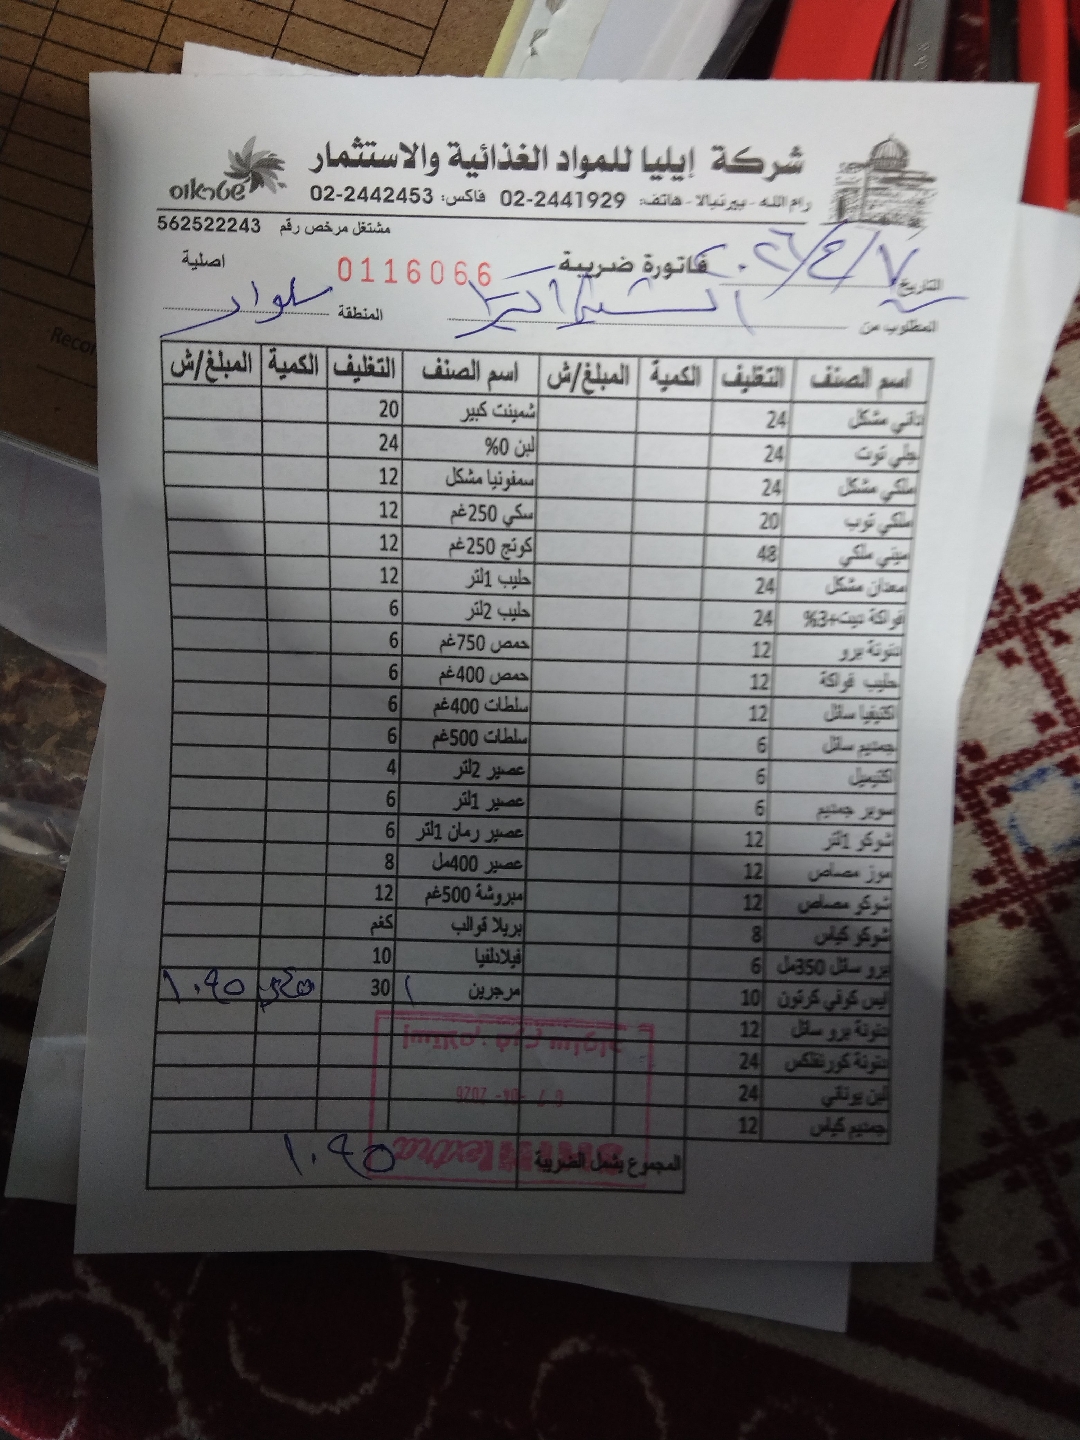 شركة إيليا للمواد الغذائية والاستثمار
שטראוס
رام الله - بيرنبالا - هاتف: 02-2441929 فاكس: 02-2442453
مشتغل مرخص رقم 562522243
فاتورة ضريبة 0116066 اصلية
التاريخ ٢٠٢٦/٤/٧
المطلوب من المنطقة سلواد
اسم الصنف التغليف الكمية المبلغ/ش اسم الصنف التغليف الكمية المبلغ/ش
داني مشكل 24 شمينت كبير 20
جلي توت 24 لبن 0% 24
ملكي مشكل 24 سمفونيا مشكل 12
ملكي توب 20 سكي 250غم 12
ميني ملكي 48 كوتج 250غم 12
معدان مشكل 24 حليب 1لتر 12
فواكة ديت+3% 24 حليب 2لتر 6
دنونة برو 12 حمص 750غم 6
حليب فواكة 12 حمص 400غم 6
اكتيفيا سائل 12 سلطات 400غم 6
جمتيم سائل 6 سلطات 500غم 6
اكتيميل 6 عصير 2لتر 4
سوبر جمتيم 6 عصير 1لتر 6
شوكو 1لتر 12 عصير رمان 1لتر 6
موز مصاص 12 عصير 400مل 8
شوكو مصاص 12 مبروشة 500غم 12
شوكو كياس 8 بريلا قوالب كغم
برو سائل 350مل 6 فيلادلفيا 10
ايس كوفي كرتون 10 مرجرين ١ 30 ١٠٩٥
دنونة برو سائل 12
دنونة كورنفلكس 24
لبن يوناني 24
جمتيم كياس 12
المجموع يشمل الضريبة ١٠٩٥
استلام: فرع سلواد
07 -04- 2026
extra